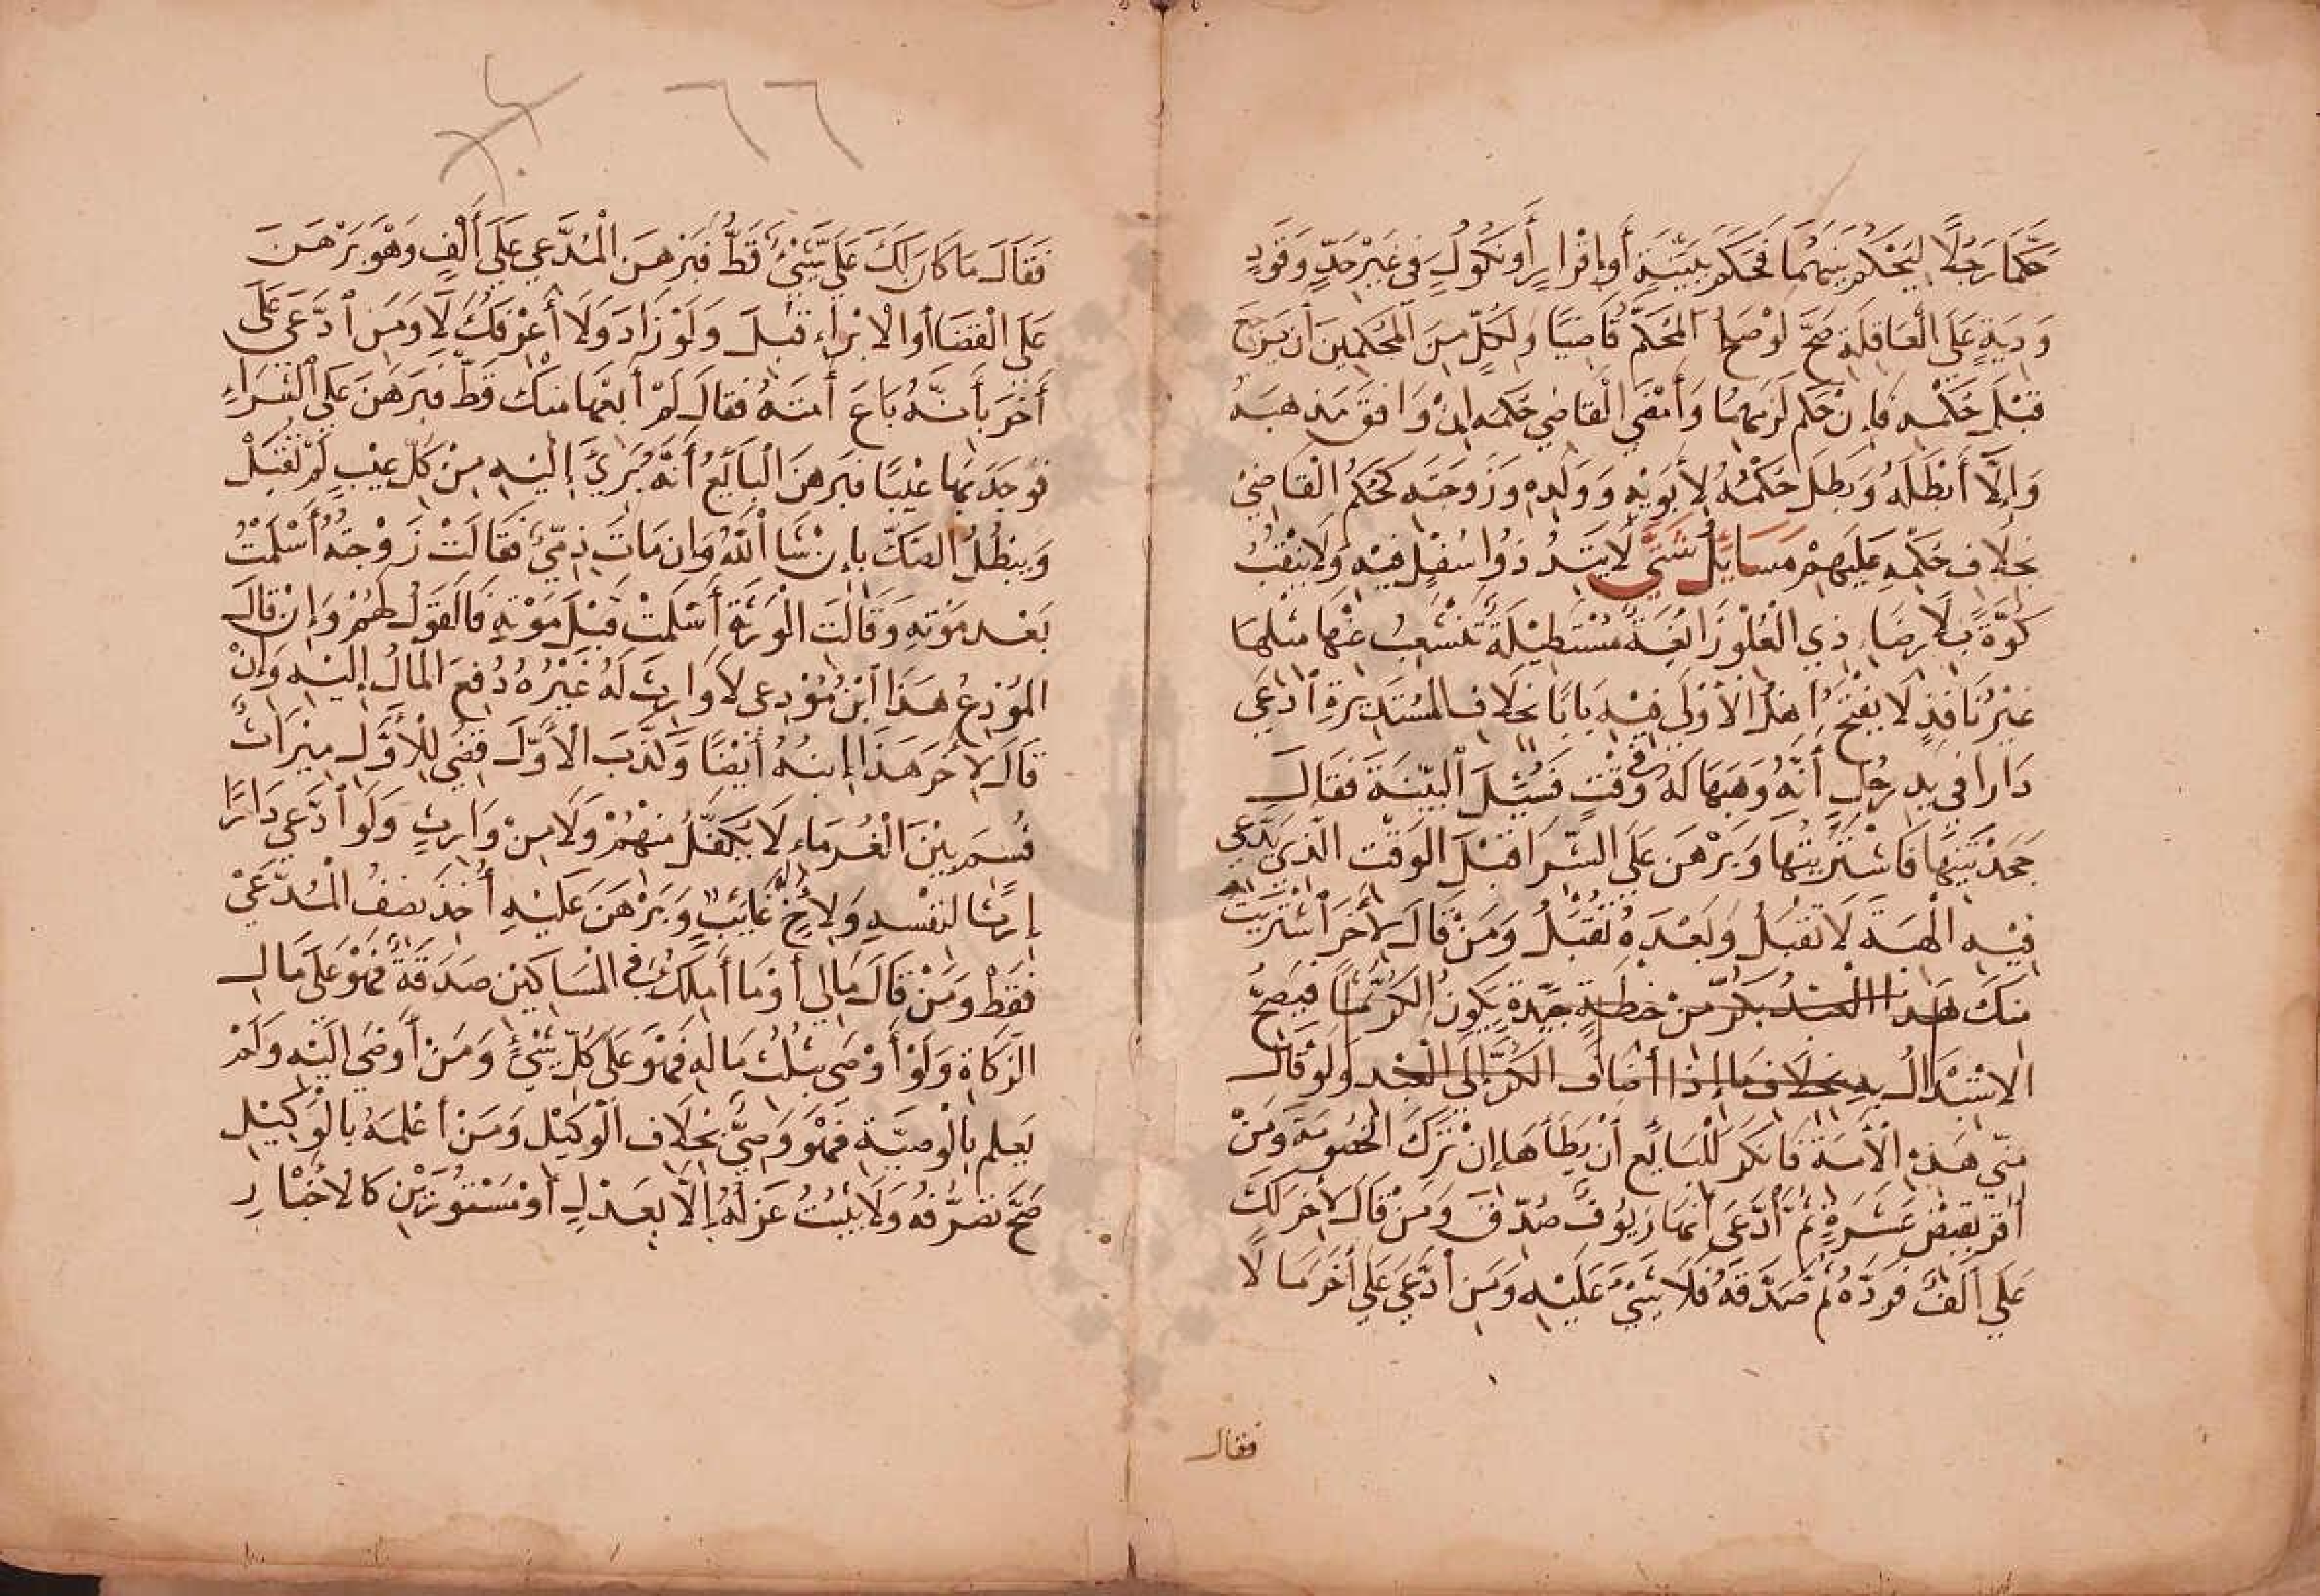 حَكَّمَا رَجُلًا لِيَحْكُمَ بَيْنَهُمَا فَحَكَمَ بِبَيِّنَةٍ أَوْ بِإِقْرَارٍ أَوْ نُكُولٍ فِي غَيْرِ حَدٍّ وَقَوَدٍ
وَدِيَةٍ عَلَى الْعَاقِلَةِ صَحَّ لَوْ صَلُحَ الْمُحَكَّمُ قَاضِيًا وَلِكُلٍّ مِنَ الْمُحَكِّمِينَ أَنْ يَرْجِعَ
قَبْلَ حُكْمِهِ فَإِنْ حَكَمَ لَزِمَهُمَا وَأَمْضَى الْقَاضِي حُكْمَهُ إِنْ وَافَقَ مَذْهَبَهُ
وَإِلَّا أَبْطَلَهُ وَبَطَلَ حُكْمُهُ لِأَبَوَيْهِ وَوَلَدِهِ وَزَوْجَتِهِ كَحُكْمِ الْقَاضِي
بِخِلَافِ حُكْمِهِ عَلَيْهِمْ مَسَايِلُ شَتَّى لَا يَتِدُ ذُوا سُفْلٍ فِيهِ وَلَا يَنْقُبُ
كَوَّةً بِلَا رِضَاءِ ذِي الْعُلُوِّ زَائِغَةٌ مُسْتَطِيلَةٌ تَنْشَعِبُ عَنْهَا مِثْلُهَا
غَيْرُ نَافِذٍ لَا يَفْتَحُ أَهْلُ الْأُولَى فِيهِ بَابًا بِخِلَافِ الْمُسْتَدِيرَةِ ادَّعَى
دَارًا فِي يَدِ رَجُلٍ أَنَّهُ وَهَبَهَا لَهُ فِي وَقْتٍ فَسُئِلَ الْبَيِّنَةَ فَقَالَ
جَحَدَنِيهَا فَاشْتَرَيْتُهَا وَبَرْهَنَ عَلَى الشِّرَا قَبْلَ الْوَقْتِ الَّذِي يَدَّعِي
فِيهِ الْهِبَةَ لَا تُقْبَلُ وَبَعْدَهُ تُقْبَلُ وَمَنْ قَالَ لِآخَرَ اشْتَرَيْتَ
مِنْكَ هَذَا الْعَبْدَ بِكُرٍّ مِنْ حِنْطَةٍ جَيِّدَةٍ يَكُونُ الْكُرُّ ثَمَنًا فَيَصِحُّ
الِاسْتِبْدَالُ بِهِ بِخِلَافِ مَا إِذَا أَضَافَ الْكُرَّ إِلَى الْعَبْدِ وَلَوْ قَالَ
مِنِّي هَذِهِ الْأَمَةَ فَأَنْكَرَ لِلْبَايِعِ أَنْ يَطَأَهَا إِنْ تَرَكَ الْخُصُومَةَ وَمَنْ
أَقَرَّ بِقَبْضِ عَشَرَةٍ ثُمَّ ادَّعَى أَنَّهَا زُيُوفٌ صُدِّقَ وَمَنْ قَالَ لِآخَرَ لَكَ
عَلَيَّ أَلْفٌ فَرَدَّهُ ثُمَّ صَدَّقَهُ فَلَا شَيْءَ عَلَيْهِ وَمَنِ ادَّعَى عَلَى آخَرَ مَالًا
فقال
٦٦
فَقَالَ مَا كَانَ لَكَ عَلَيَّ شَيْءٌ قَطُّ فَبَرْهَنَ الْمُدَّعِي عَلَى أَلْفٍ وَهُوَ بَرْهَنَ
عَلَى الْقَضَا أَوِ الْإِبْرَاءِ قُبِلَ وَلَوْ زَادَ وَلَا أَعْرِفُكَ لَا وَمَنِ ادَّعَى عَلَى
آخَرَ بِأَنَّهُ بَاعَ أَمَتَهُ فَقَالَ لَمْ أَبِعْهَا مِنْكَ قَطُّ فَبَرْهَنَ عَلَى الشِّرَاءِ
فَوَجَدَ بِهَا عَيْبًا فَبَرْهَنَ الْبَايِعُ أَنَّهُ بَرِيَ إِلَيْهِ مِنْ كُلِّ عَيْبٍ لَمْ تُقْبَلْ
وَيَبْطُلُ الصَّكُّ بِإِنْ شَا اللَّهُ وَإِنْ مَاتَ ذِمِّيٌّ فَقَالَتْ زَوْجَتُهُ أَسْلَمْتُ
بَعْدَ مَوْتِهِ وَقَالَتِ الْوَرَثَةُ أَسْلَمَتْ قَبْلَ مَوْتِهِ فَالْقَوْلُ لَهُمْ وَإِنْ قَالَ
الْمُودَعُ هَذَا ابْنُ مُودِعِي لَا وَارِثَ لَهُ غَيْرُهُ دُفِعَ الْمَالُ إِلَيْهِ وَإِنْ
قَالَ لِآخَرَ هَذَا إِبْنُهُ أَيْضًا وَكَذَّبَ الْأَوَّلَ قُضِيَ لِلْأَوَّلِ مِيرَاثٌ
قُسِمَ بَيْنَ الْغُرَمَاءِ لَا يُكَفَّلُ مِنْهُمْ وَلَا مِنْ وَارِثٍ وَلَوِ ادَّعَى دَارًا
إِرْثًا لِنَفْسِهِ وَلِأَخٍ لَهُ غَايِبٍ وَبَرْهَنَ عَلَيْهِ أَخَذَ نِصْفَ الْمُدَّعَى
فَقَطْ وَمَنْ قَالَ مَالِي أَوْ مَا أَمْلِكُ فِي الْمَسَاكِينِ صَدَقَةٌ فَهُوَ عَلَى مَالِ
الزَّكَاةِ وَلَوْ أَوْصَى بِثُلُثِ مَالِهِ فَهُوَ عَلَى كُلِّ شَيْءٍ وَمَنْ أَوْصَى إِلَيْهِ وَلَمْ
يَعْلَمْ بِالْوَصِيَّةِ فَهُوَ وَصِيٌّ بِخِلَافِ الْوَكِيلِ وَمَنْ أَعْلَمَهُ بِالْوَكِيلِ
صَحَّ تَصَرُّفُهُ وَلَا يَثْبُتُ عَزْلُهُ إِلَّا بِعَدْلٍ أَوْ مَسْتُورَيْنِ كَالْإِخْبَارِ